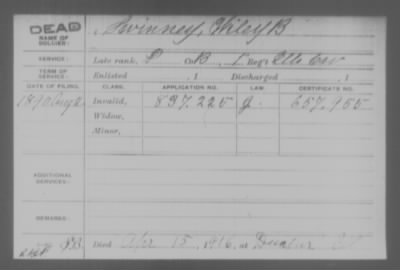 DEAD
NAME OF SOLDIER:
Swinney, Wiley B
SERVICE:
Late rank, P Co. B, 1 Reg't Ills Cav
TERM OF SERVICE:
Enlisted , 1 Discharged , 1
DATE OF FILING. CLASS. APPLICATION NO. LAW. CERTIFICATE NO.
1890 Aug 2 Invalid, 837.225 J. 657.955
Widow,
Minor,
ADDITIONAL SERVICES:
REMARKS:
Died Apr 15, 1916, at